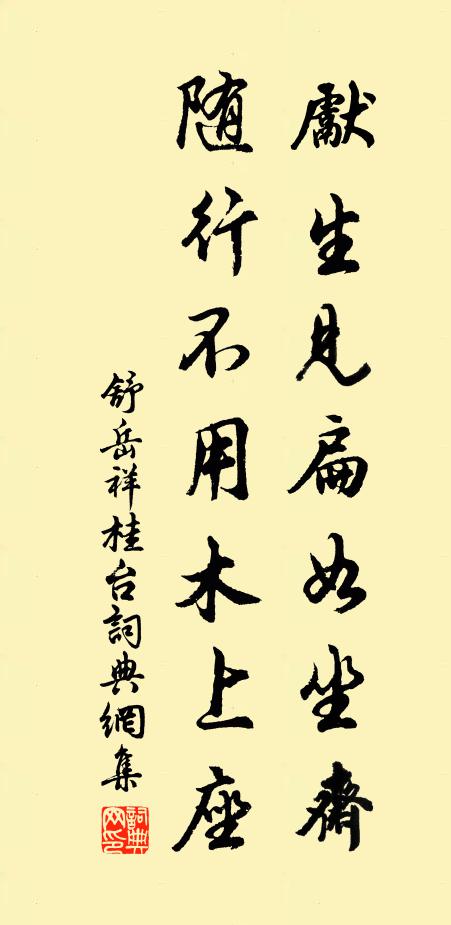 獻生見扁如坐齋
随行不用木上座
舒岳祥桂台詞典網集
詞典
网印